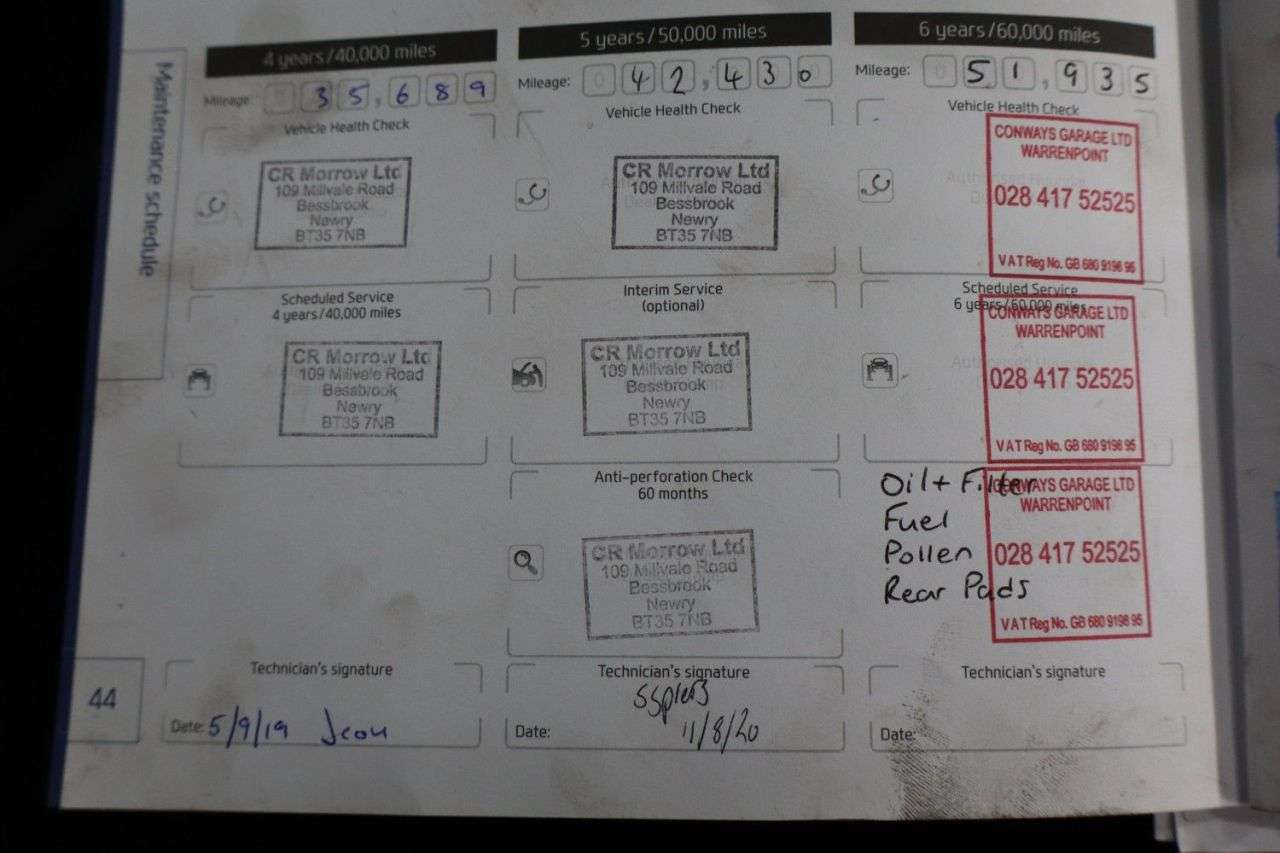 Maintenance schedule
44
4 years/40,000 miles
Mileage: 0 35,689
Vehicle Health Check
CR Morrow Ltd
109 Millvale Road
Bessbrook
Newry
BT35 7NB
Scheduled Service
4 years/40,000 miles
CR Morrow Ltd
109 Millvale Road
Bessbrook
Newry
BT35 7NB
Technician's signature
Date: 5/9/19
5 years/50,000 miles
Mileage: 0 42,430
Vehicle Health Check
CR Morrow Ltd
109 Millvale Road
Bessbrook
Newry
BT35 7NB
Interim Service
(optional)
CR Morrow Ltd
109 Millvale Road
Bessbrook
Newry
BT35 7NB
Anti-perforation Check
60 months
CR Morrow Ltd
109 Millvale Road
Bessbrook
Newry
BT35 7NB
Technician's signature
Date: 11/8/20
6 years/60,000 miles
Mileage: 0 51,935
Vehicle Health Check
CONWAYS GARAGE LTD
WARRENPOINT
028 417 52525
VAT Reg No. GB 680 9198 95
Scheduled Service
6 years/60,000 miles
CONWAYS GARAGE LTD
WARRENPOINT
028 417 52525
VAT Reg No. GB 680 9198 95
Oil + Filter
Fuel
Pollen
Rear Pads
CONWAYS GARAGE LTD
WARRENPOINT
028 417 52525
VAT Reg No. GB 680 9198 95
Technician's signature
Date: